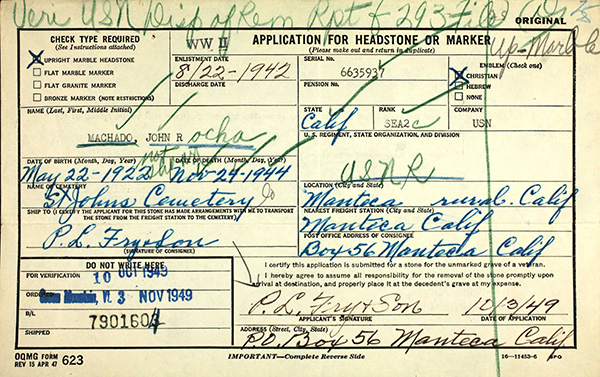 Veri USN Disp of Rem Rpt # 293 Filed
ORIGINAL
CHECK TYPE REQUIRED
(See Instructions attached)
UPRIGHT MARBLE HEADSTONE
FLAT MARBLE MARKER
FLAT GRANITE MARKER
BRONZE MARKER (NOTE RESTRICTIONS)
WW II
ENLISTMENT DATE
8/22-1942
DISCHARGE DATE
APPLICATION FOR HEADSTONE OR MARKER
(Please make out and return in duplicate)
SERIAL No.
6635937
PENSION No.
Up-Marble
EMBLEM (Check one)
CHRISTIAN
HEBREW
NONE
NAME (Last, First, Middle Initial)
MACHADO, JOHN R ocha
STATE
Calif
RANK
SEA2c
COMPANY
USN
U.S. REGIMENT, STATE ORGANIZATION, AND DIVISION
USNR
DATE OF BIRTH (Month, Day, Year)
May 22-1922
DATE OF DEATH (Month, Day, Year)
Nov-24-1944
NAME OF CEMETERY
St Johns Cemetery
LOCATION (City and State)
Manteca rural. Calif
SHIP TO (I CERTIFY THE APPLICANT FOR THIS STONE HAS MADE ARRANGEMENTS WITH ME TO TRANSPORT
THE STONE FROM THE FREIGHT STATION TO THE CEMETERY)
P.L. Fry & Son
(SIGNATURE OF CONSIGNEE)
NEAREST FREIGHT STATION (City and State)
Manteca Calif
POST OFFICE ADDRESS OF CONSIGNEE
Box 56 Manteca Calif
DO NOT WRITE HERE
FOR VERIFICATION
10 OCT 1949
ORDERED
3 NOV 1949
B/L
7901604
SHIPPED
I certify this application is submitted for a stone for the unmarked grave of a veteran.
I hereby agree to assume all responsibility for the removal of the stone promptly
upon arrival at destination, and properly place it at the decedent's grave at my expense.
P.L. Fry & Son
APPLICANT'S SIGNATURE
10/3/49
DATE OF APPLICATION
ADDRESS (Street, City, State)
P.O. Box 56 Manteca Calif.
OQMG FORM
REV 15 APR 47
623
IMPORTANT—Complete Reverse Side
16—11453-6 GPO